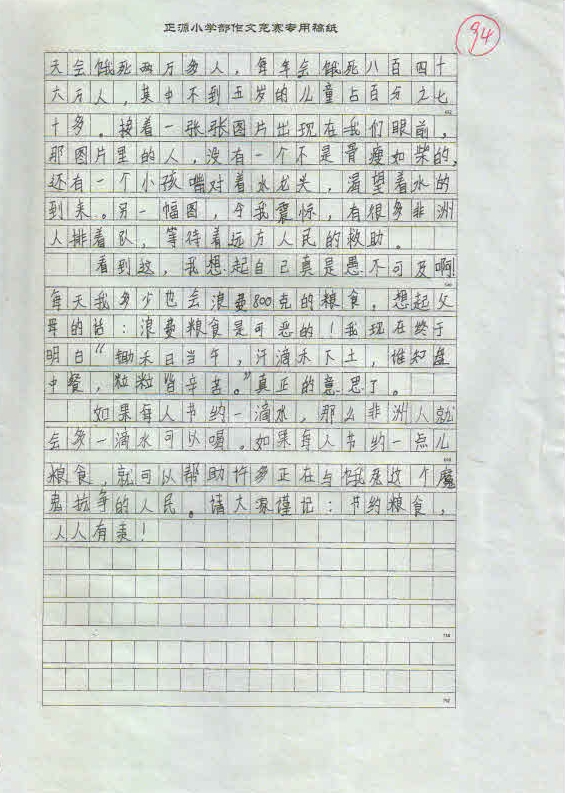 正源小学部作文竞赛专用稿纸
94
天会饿死两万多人，每年会饿死八百四十
六万人，其中不到五岁的儿童占百分之七
十多。接着一张张图片出现在我们眼前，
那图片里的人，没有一个不是骨瘦如柴的，
还有一个小孩嘴对着水龙头，渴望着水的
到来。另一幅图，令我震惊，有很多非洲
人排着队，等待着远方人民的救助。
看到这，我想起自己真是愚不可及啊！
每天我多少也会浪费800克的粮食，想起父
母的话：浪费粮食是可恶的！我现在终于
明白“锄禾日当午，汗滴禾下土，谁知盘
中餐，粒粒皆辛苦。”真正的意思了。
如果每人节约一滴水，那么非洲人就
会多一滴水可以喝。如果每人节约一点儿
粮食，就可以帮助许多正在与饿死这个魔
鬼抗争的人民。请大家谨记：节约粮食，
人人有责！